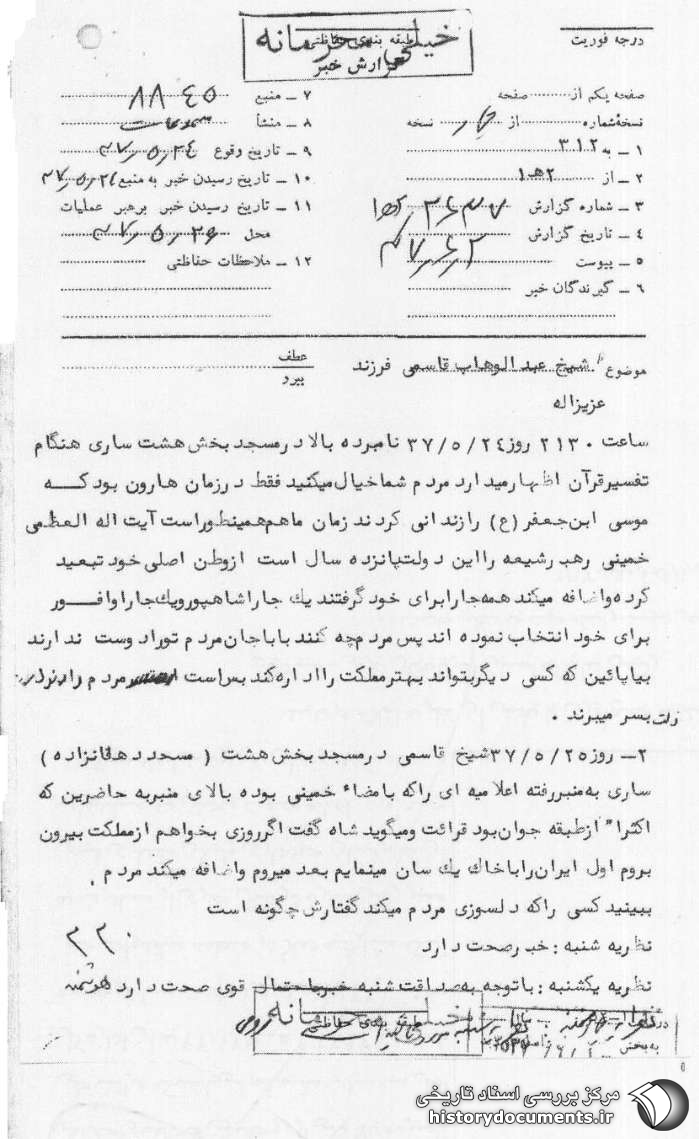 خیلی محرمانه
طبقه بندی حفاظتی
گزارش خبر
درجه فوریت
صفحه یکم از صفحه
نسخه شماره از چهار نسخه
۱ ـ به ۳۱۲
۲ ـ از ۲هـ۱
۳ ـ شماره گزارش
۴ ـ تاریخ گزارش
۵ ـ پیوست
۶ ـ گیرندگان خبر
۷ ـ منبع ۸۸۴۵
۸ ـ منشأ
۹ ـ تاریخ وقوع ۳۷٫۵٫۲۴
۱۰ ـ تاریخ رسیدن خبر به منبع
۱۱ ـ تاریخ رسیدن خبر برهبر عملیات
محل ۳۷٫۵٫۲۶
۱۲ ـ ملاحظات حفاظتی
موضوع شیخ عبدالوهاب قاسمی فرزند
عزیزاله
عطف
پیرو
ساعت ۲۱۳۰ روز ۳۷/۵/۲٤ نامبرده بالا در مسجد بخش هشت ساری هنگام
تفسیر قرآن اظهار میدارد مردم شما خیال میکنید فقط در زمان هارون بود که
موسی ابن جعفر (ع) را زندانی کردند زمان ما هم همینطور است آیت اله العظمی
خمینی رهبر شیعه را این دولت پانزده سال است از وطن اصلی خود تبعید
کرده و اضافه میکند همه جا را برای خود گرفتند یك جا را شاهپور و یك جا را وافور
برای خود انتخاب نموده اند پس مردم چه کنند بابا جان مردم تو را دوست ندارند
بیا پائین که کسی دیگر بتواند بهتر مملکت را اداره کند بس است مردم را
بسر میبرند .
۲ـ روز ۳۷/۵/۲۵ شیخ قاسمی در مسجد بخش هشت ( مسجد دهقانزاده )
ساری به منبر رفته اعلامیه ای را که بامضاء خمینی بوده بالای منبر به حاضرین که
اکثرا" از طبقه جوان بود قرائت و میگوید شاه گفت اگر روزی بخواهم از مملکت بیرون
بروم اول ایران را با خاك یك سان مینمایم بعد میروم و اضافه میکند مردم
ببینید کسی را که دلسوزی مردم میکند گفتارش چگونه است
نظریه شنبه : خبر صحت دارد
نظریه یکشنبه : با توجه به صداقت شنبه خبر با احتمال قوی صحت دارد
خیلی محرمانه
طبقه بندی حفاظتی
به بخش
مرکز بررسی اسناد تاریخی
historydocuments.ir